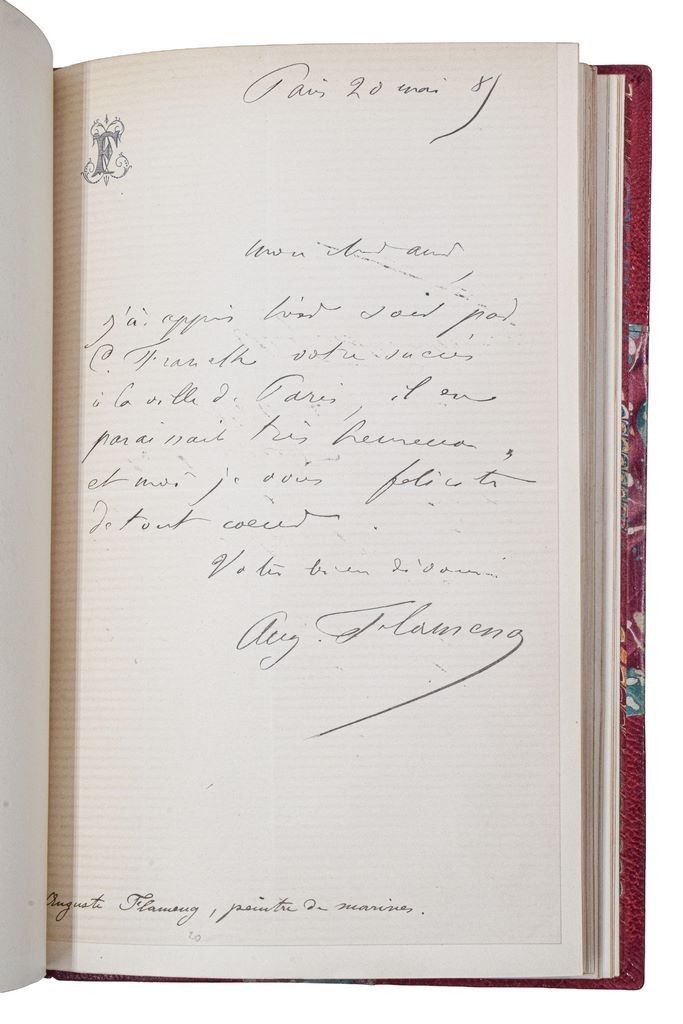 Paris 20 mai 85
F
mon cher ami,
j'ai appris hier soir par
C. votre succès
à la ville de Paris, il en
paraissait très heureux,
et moi je vous félicite
de tout coeur.
Votre bien dévoué
Aug. Flameng
Auguste Flameng, peintre de marines.
20